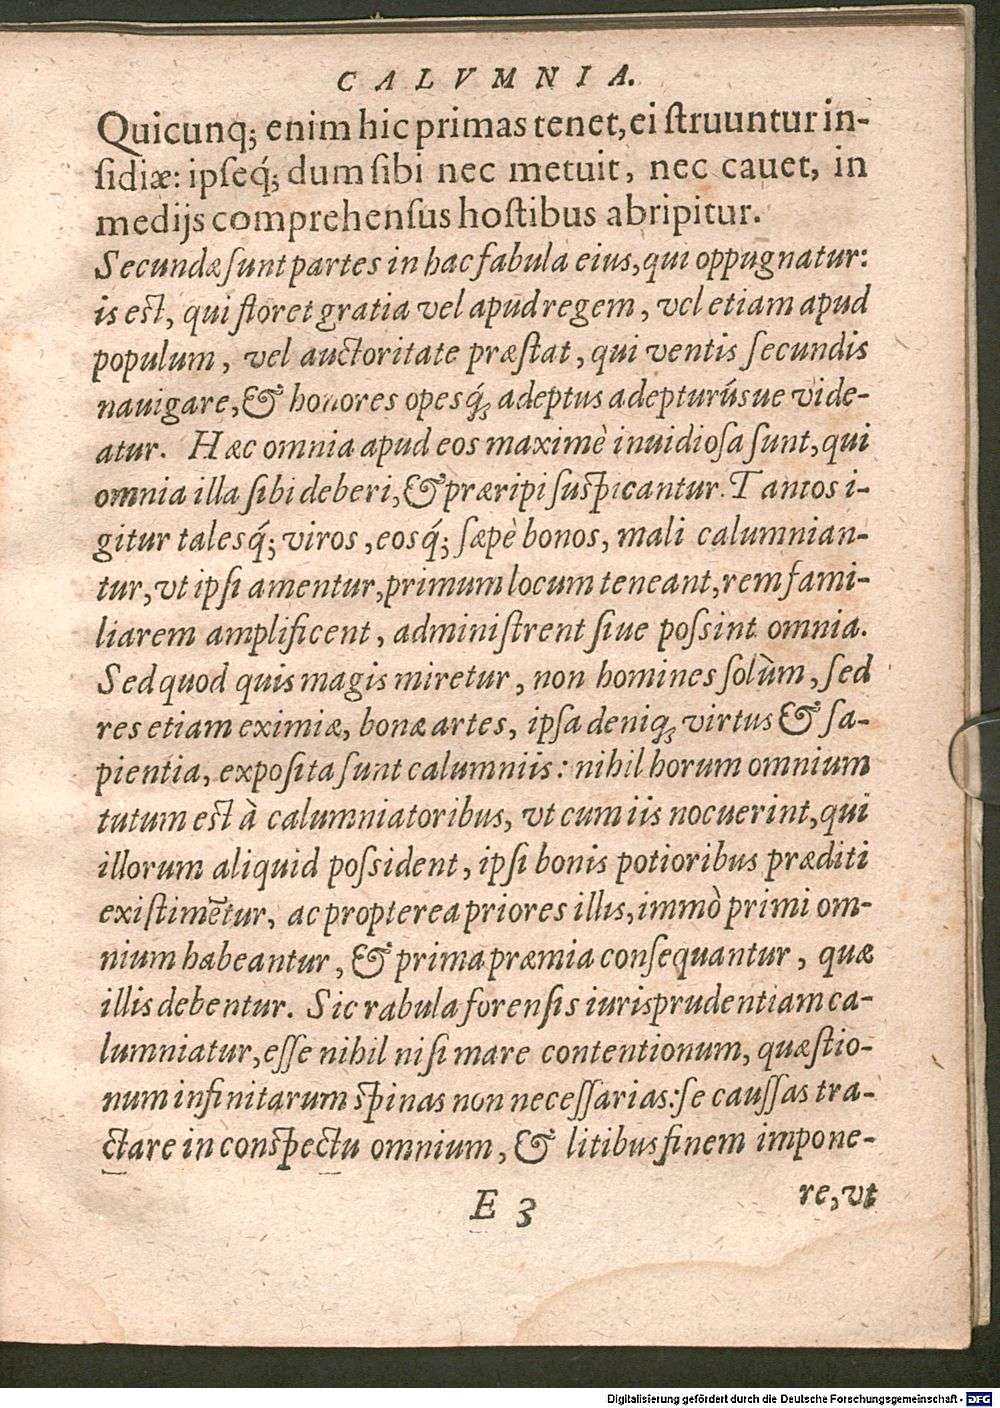 CALVMNIA.
Quicunq; enim hic primas tenet, ei ſtruuntur in-
ſidiæ: ipſeq́; dum ſibi nec metuit, nec cauet, in
medijs comprehenſus hoſtibus abripitur.
Secundæ ſunt partes in hac fabula eius, qui oppugnatur:
is est, qui floret gratia vel apud regem, vel etiam apud
populum, vel auctoritate præſtat, qui ventis ſecundis
nauigare, & honores opesq́; adeptus adepturúsue vide-
atur. Hæc omnia apud eos maximè inuidioſa ſunt, qui
omnia illa ſibi deberi, & præripi ſuſpicantur. Tantos i-
gitur talesq́; viros, eosq́; ſæpè bonos, mali calumnian-
tur, vt ipſi amentur, primum locum teneant, rem fami-
liarem amplificent, adminiſtrent ſiue poſsint omnia.
Sed quod quis magis miretur, non homines ſolùm, ſed
res etiam eximiæ, bonæ artes, ipſa deniq; virtus & ſa-
pientia, expoſita ſunt calumniis: nihil horum omnium
tutum est à calumniatoribus, vt cum iis nocuerint, qui
illorum aliquid poſsident, ipſi bonis potioribus præditi
exiſtimẽtur, ac propterea priores illis, immò primi om-
nium habeantur, & prima præmia conſequantur, quæ
illis debentur. Sic rabula forenſis iurisprudentiam ca-
lumniatur, eſſe nihil niſi mare contentionum, quæſtio-
num infinitarum ſpinas non neceſſarias: ſe cauſſas tra-
ctare in conſpectu omnium, & litibus finem impone-
E 3
re, vt
Digitalisierung gefördert durch die Deutsche Forschungsgemeinschaft - DFG